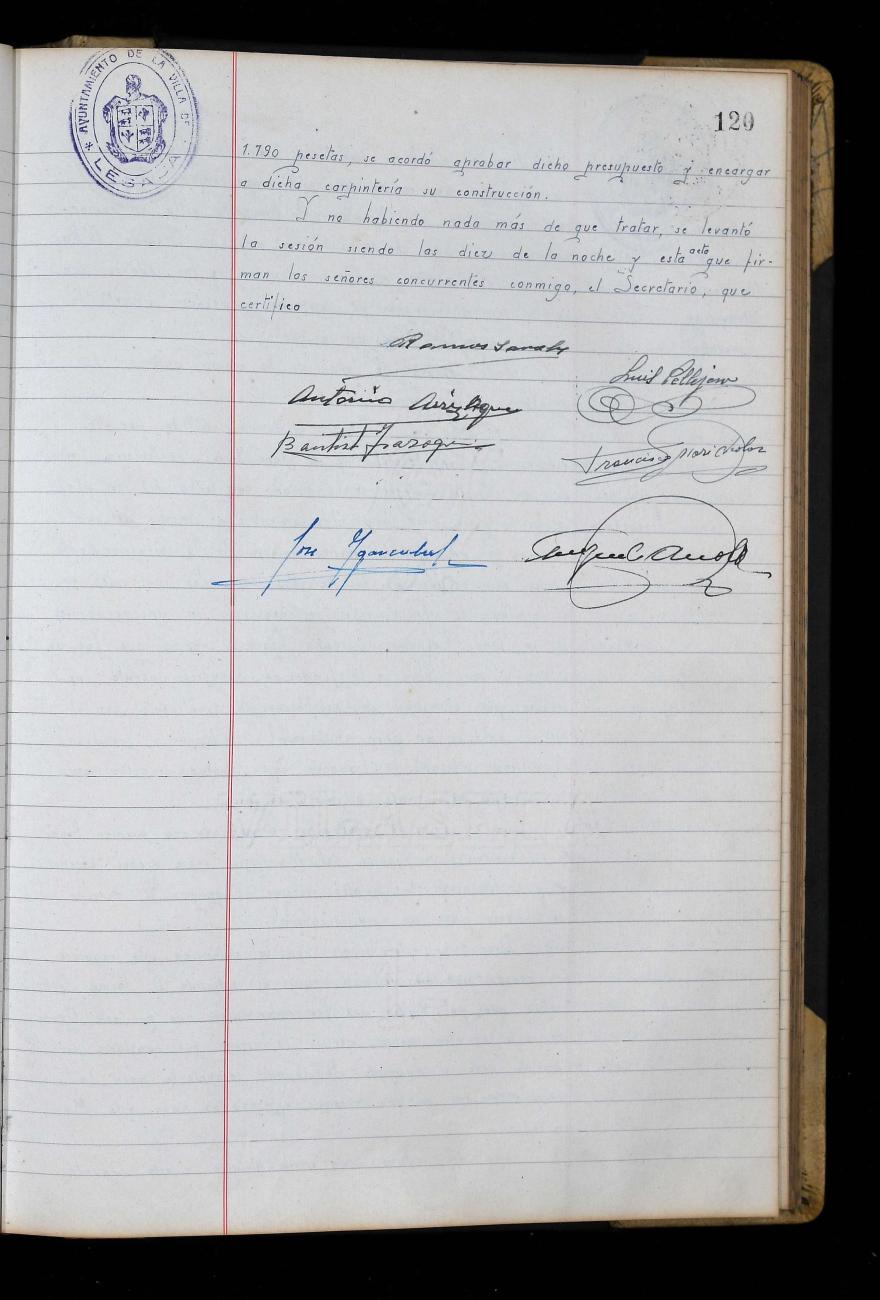 * AYUNTAMIENTO DE LA VILLA DE LEGASA
120
1.790 pesetas, se acordó aprobar dicho presupuesto y encargar
a dicha carpintería su construcción.
Y no habiendo nada más de que tratar, se levantó
la sesión siendo las diez de la noche y esta acta que fir-
man los señores concurrentes conmigo, el Secretario, que
certifico
Ramos
Luis
Antonio
Bautist
Francisco
José
Miguel